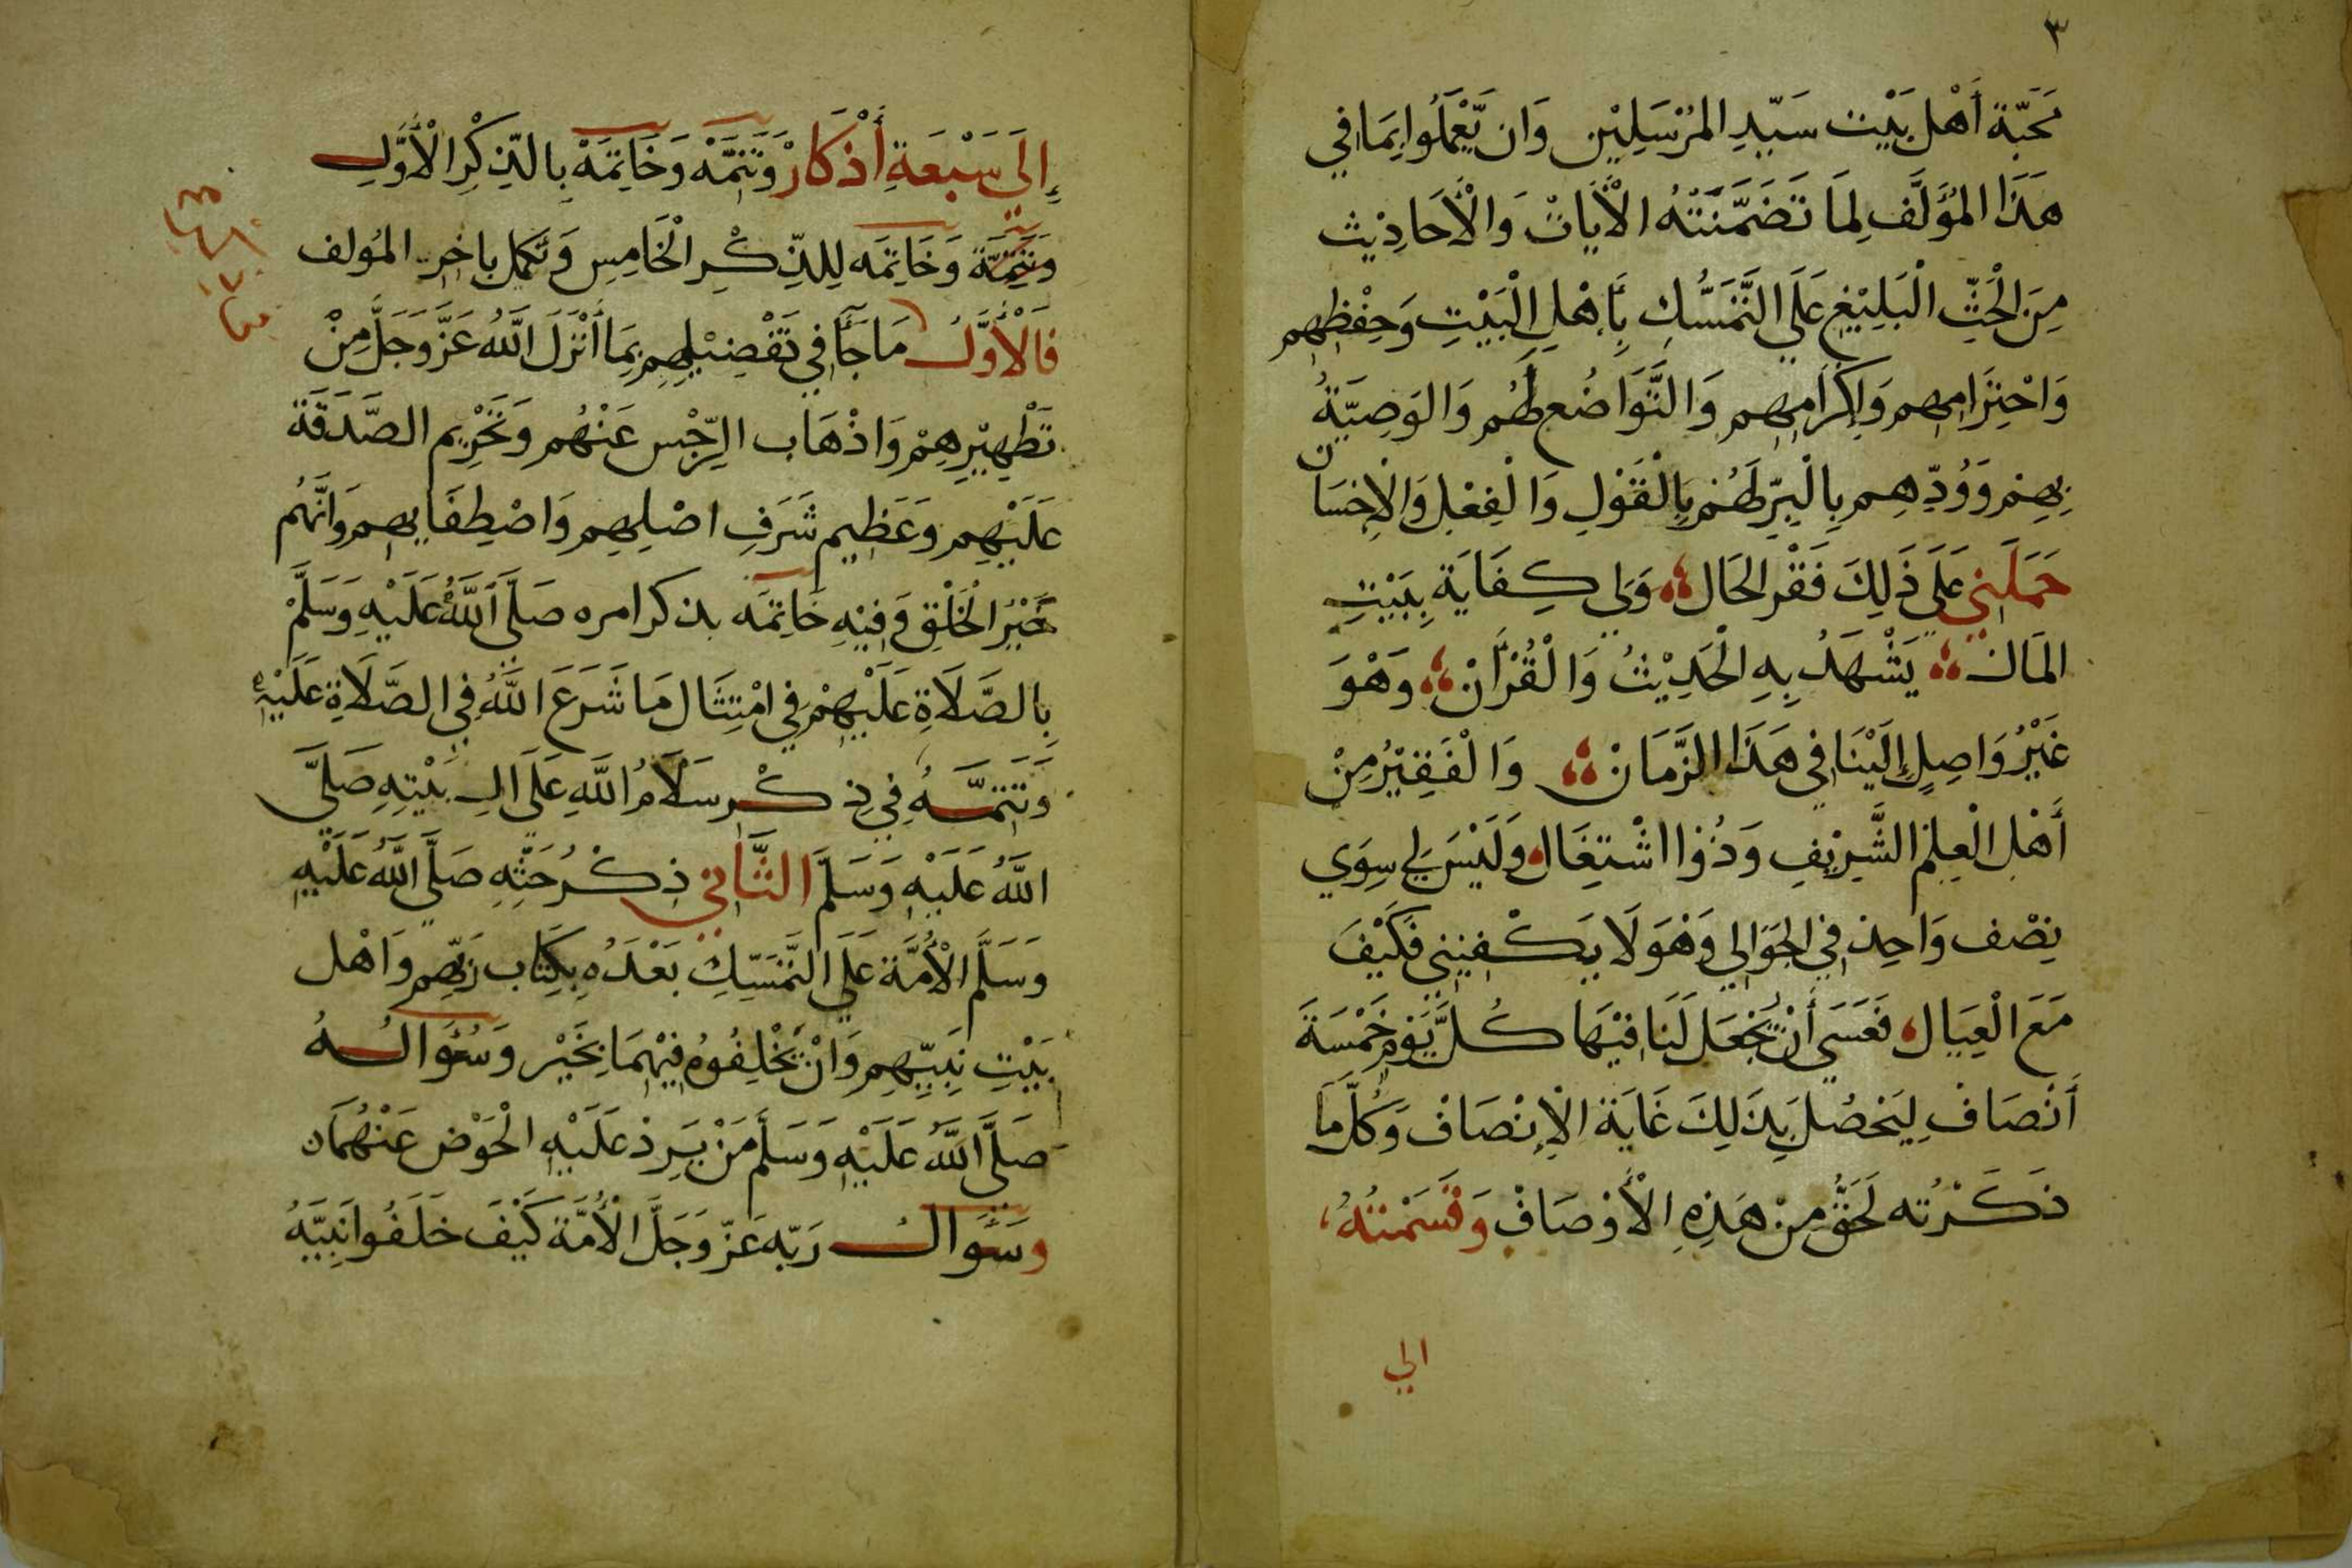 ٣
مَحَبَّة أَهْل بَيْت سَيِّدِ المُرْسَلِيْن وَان يَّعْمَلُوا بِمَا في
هَذَا المُؤَلَّف لِمَا تَضَمَّنَتْهُ الْأَيَاتْ وَالْأَحَادِيْث
مِنَ الْحَثِّ الْبَلِيْغِ عَلَي التَّمَسُّكِ بِأَهْلِ الْبَيْتِ وَحِفْظِهِم
وَاحْتِرَامِهِم وَإِكْرَامِهِم وَالتَّوَاضُع لَهُم وَالوَصِيَّةُ
بِهِمْ وَوُدِّهِم بِالْبِرِّ لَهُمْ بِالْقَوْلِ وَالْفِعْلِ وَالْإِحْسَان
حَمَلَنِي عَلَي ذَلِكَ فَقْر الحَال وَلِي كِفَايَة بِبَيْتِ
المَال يَشْهَدُ بِهِ الْحَدِيْثُ وَالْقُرْأَنْ وَهْوَ
غَيْرُ وَاصِلٍ إِلَيْنَا فِي هَذَا الزَّمَانْ وَالْفَقِيْرُ مِنْ
أَهْلِ الْعِلْمِ الشَّرِيْفِ وَذُوا اشْتِغَال وَلَيْسَ لِي سِوَي
نِصْف وَاحِد فِي الجَوَالِي وَهْوَ لَا يَكْفِيْنِي فَكَيْفَ
مَعَ الْعِيَال فَعَسَي أَنْ يُجْعَل لَنَا فِيْهَا كُلَّ يَوْمٍ خَمْسَةَ
أَنْصَافْ لِيَحْصُل بِذَلِكَ غَايَة الْإِنْصَافْ وَكُلَّ مَا
ذَكَرْتُه لَحَقٌّ مِنْ هَذِهِ الْأَوْصَافْ وَقَسَمْتُهُ
الي
إِلَى سَبْعَةِ أَذْكَارْ وَتَتِمَّهْ وَخَاتِمَهْ بِالذِّكْرِ الْأَوَّلِ
وَتَتِمَّة وَخَاتِمَه لِلذِّكْرِ الْخَامِس وَتَكمل باخِر المُولف
فَالْأَوَّلُ مَا جَآءَ فِي تَفْضِيْلِهِم بِمَا أَنْزَلَ اللَّهُ عَزَّ وَجَلَّ مِنْ
تَطْهِيْرِهِمْ وَاذْهَاب الرِّجْس عَنْهُم وَتَحْرِيم الصَّدَقَة
عَلَيْهِم وَعَظِيم شَرَفِ اصْلِهِم وَاصْطِفَايِهِم وَانَّهُم
خَيْرُ الْخَلْقِ وَفِيْهِ خَاتِمَه بذكر امره صَلَّى اللَّهُ عَلَيْهِ وَسَلَّمْ
بِالصَّلَاةِ عَلَيْهِمْ فِي امْتِثَال مَا شَرَعَ اللَّهُ فِي الصَّلَاةِ عَلَيْهِ
وَتَتِمَّهُ فِي ذِكْرِ سَلَامُ اللَّهِ عَلَى الِ بَيْتِهِ صَلَّى
اللَّهُ عَلَيْهِ وَسَلَّمَ الثَّانِي ذِكْرُ حَثِّهِ صَلَّى اللَّهُ عَلَيْهِ
وَسَلَّمَ الْأُمَّة عَلَي التَّمَسّكِ بَعْدَهُ بِكِتَاب رَبِّهِم وَاهْل
بَيْتِ نِبِيِّهِم وَانْ يَخْلِفُوهُ فِيْهِمَا بِخَيْر وَسُؤَالُهُ
صَلَّى اللَّهُ عَلَيْهِ وَسَلَّم مَنْ يَرِدْ عَلَيْهِ الْحَوْض عَنْهُمَا
وَسُؤَالُ رَبّه عَزّ وَجَلَّ الْأُمَّة كَيْفَ خَلَفُوا نَبِيَّهُ